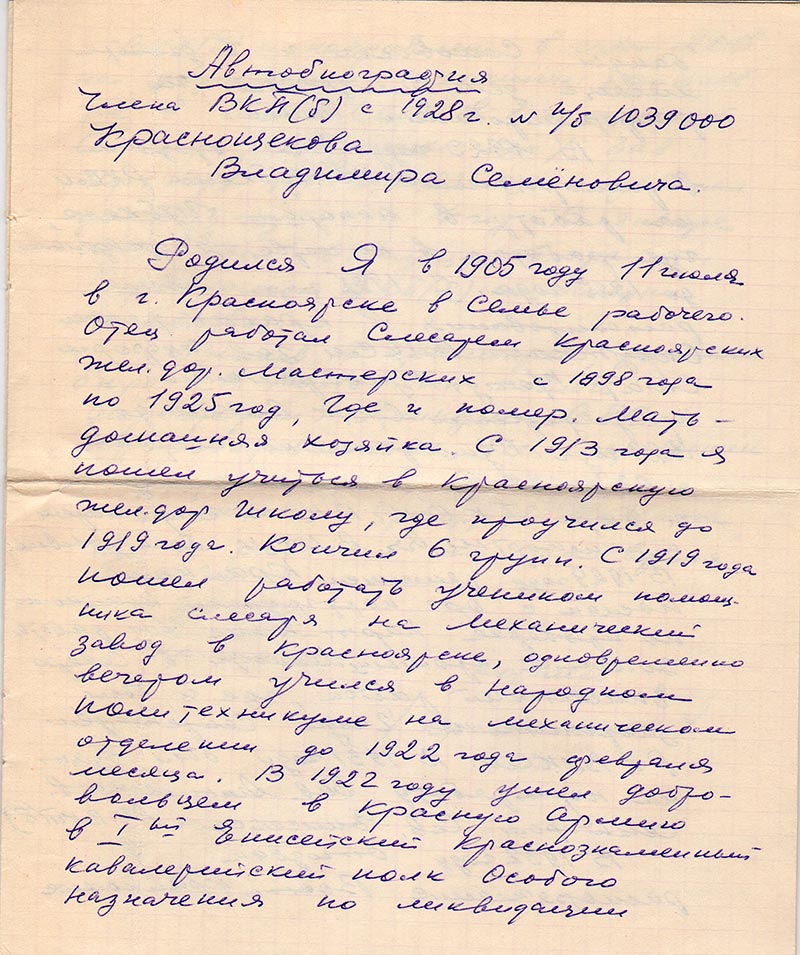 Автобиография
Члена ВКП(б) с 1928 г. № п/б 1039000
Краснощекова
Владимира Семёновича.
Родился Я в 1905 году 11 июля
в г. Красноярске в Семье рабочего.
Отец работал Слесарем Красноярских
жел. дор. Мастерских с 1898 года
по 1925 год, где и помер. Мать –
домашняя хозяйка. С 1913 года я
пошел учиться в Красноярскую
жел. дор школу, где проучился до
1919 года. Кончил 6 групп. С 1919 года
пошел работать учеником помощ-
ника слесаря на Механический
завод в Красноярске, одновременно
вечером учился в народном
политехникуме на механическом
отделении до 1922 года февраля
месяца. В 1922 году ушел добро-
вольцем в Красную Армию
в I ый Енисейский Краснознаменный
кавалерийский полк Особого
назначения по ликвидации